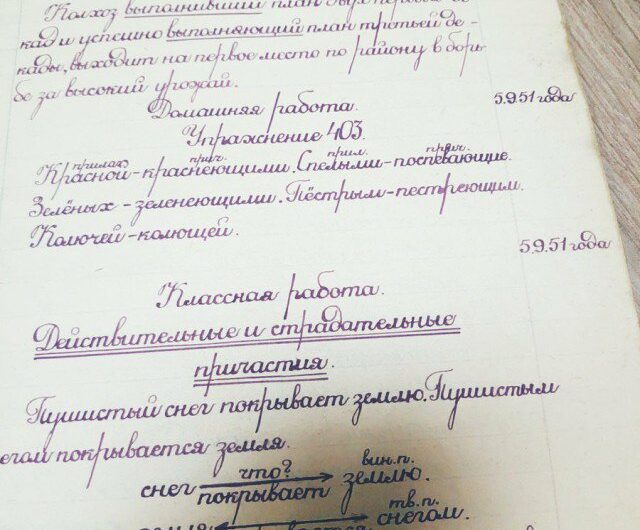 Колхоз выполнивший план двух первых де-
кад и успешно выполняющий план третьей де-
кады, выходит на первое место по району в борь-
бе за высокий урожай.
Домашняя работа. 5.9.51 года
Упражнение 403.
прилаг. прич. прил. прич.
Красной-краснеющими. Спелыми-поспевающие.
Зелёных-зеленеющими. Пёстрым-пестреющим.
Колючей-колющей.
5.9.51 года
Классная работа.
Действительные и страдательные
причастия.
Пушистый снег покрывает землю. Пушистым
снегом покрывается земля.
что? вин.п.
снег покрывает землю.
тв.п.
снегом.